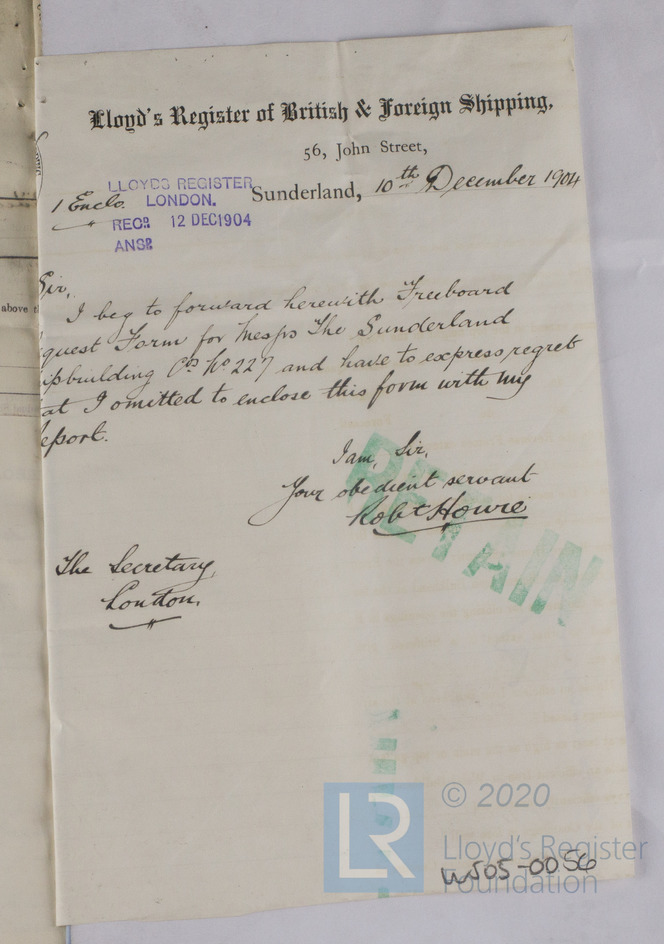 Lloyd's Register of British & Foreign Shipping,
56, John Street,
Sunderland, 10th December 1904
1 Enclo.
LLOYDS REGISTER
LONDON.
RECD. 12 DEC 1904
ANSD.
above
Sir,
I beg to forward herewith Freeboard
quest Form for Messrs The Sunderland
ipbuilding Co's No 227 and have to express regret
at I omitted to enclose this form with my
eport.
I am, Sir,
Your obedient servant
Robt Howie
The Secretary,
London.
RETAIN
LR
© 2020
Lloyd's Register
Foundation
W505-0056